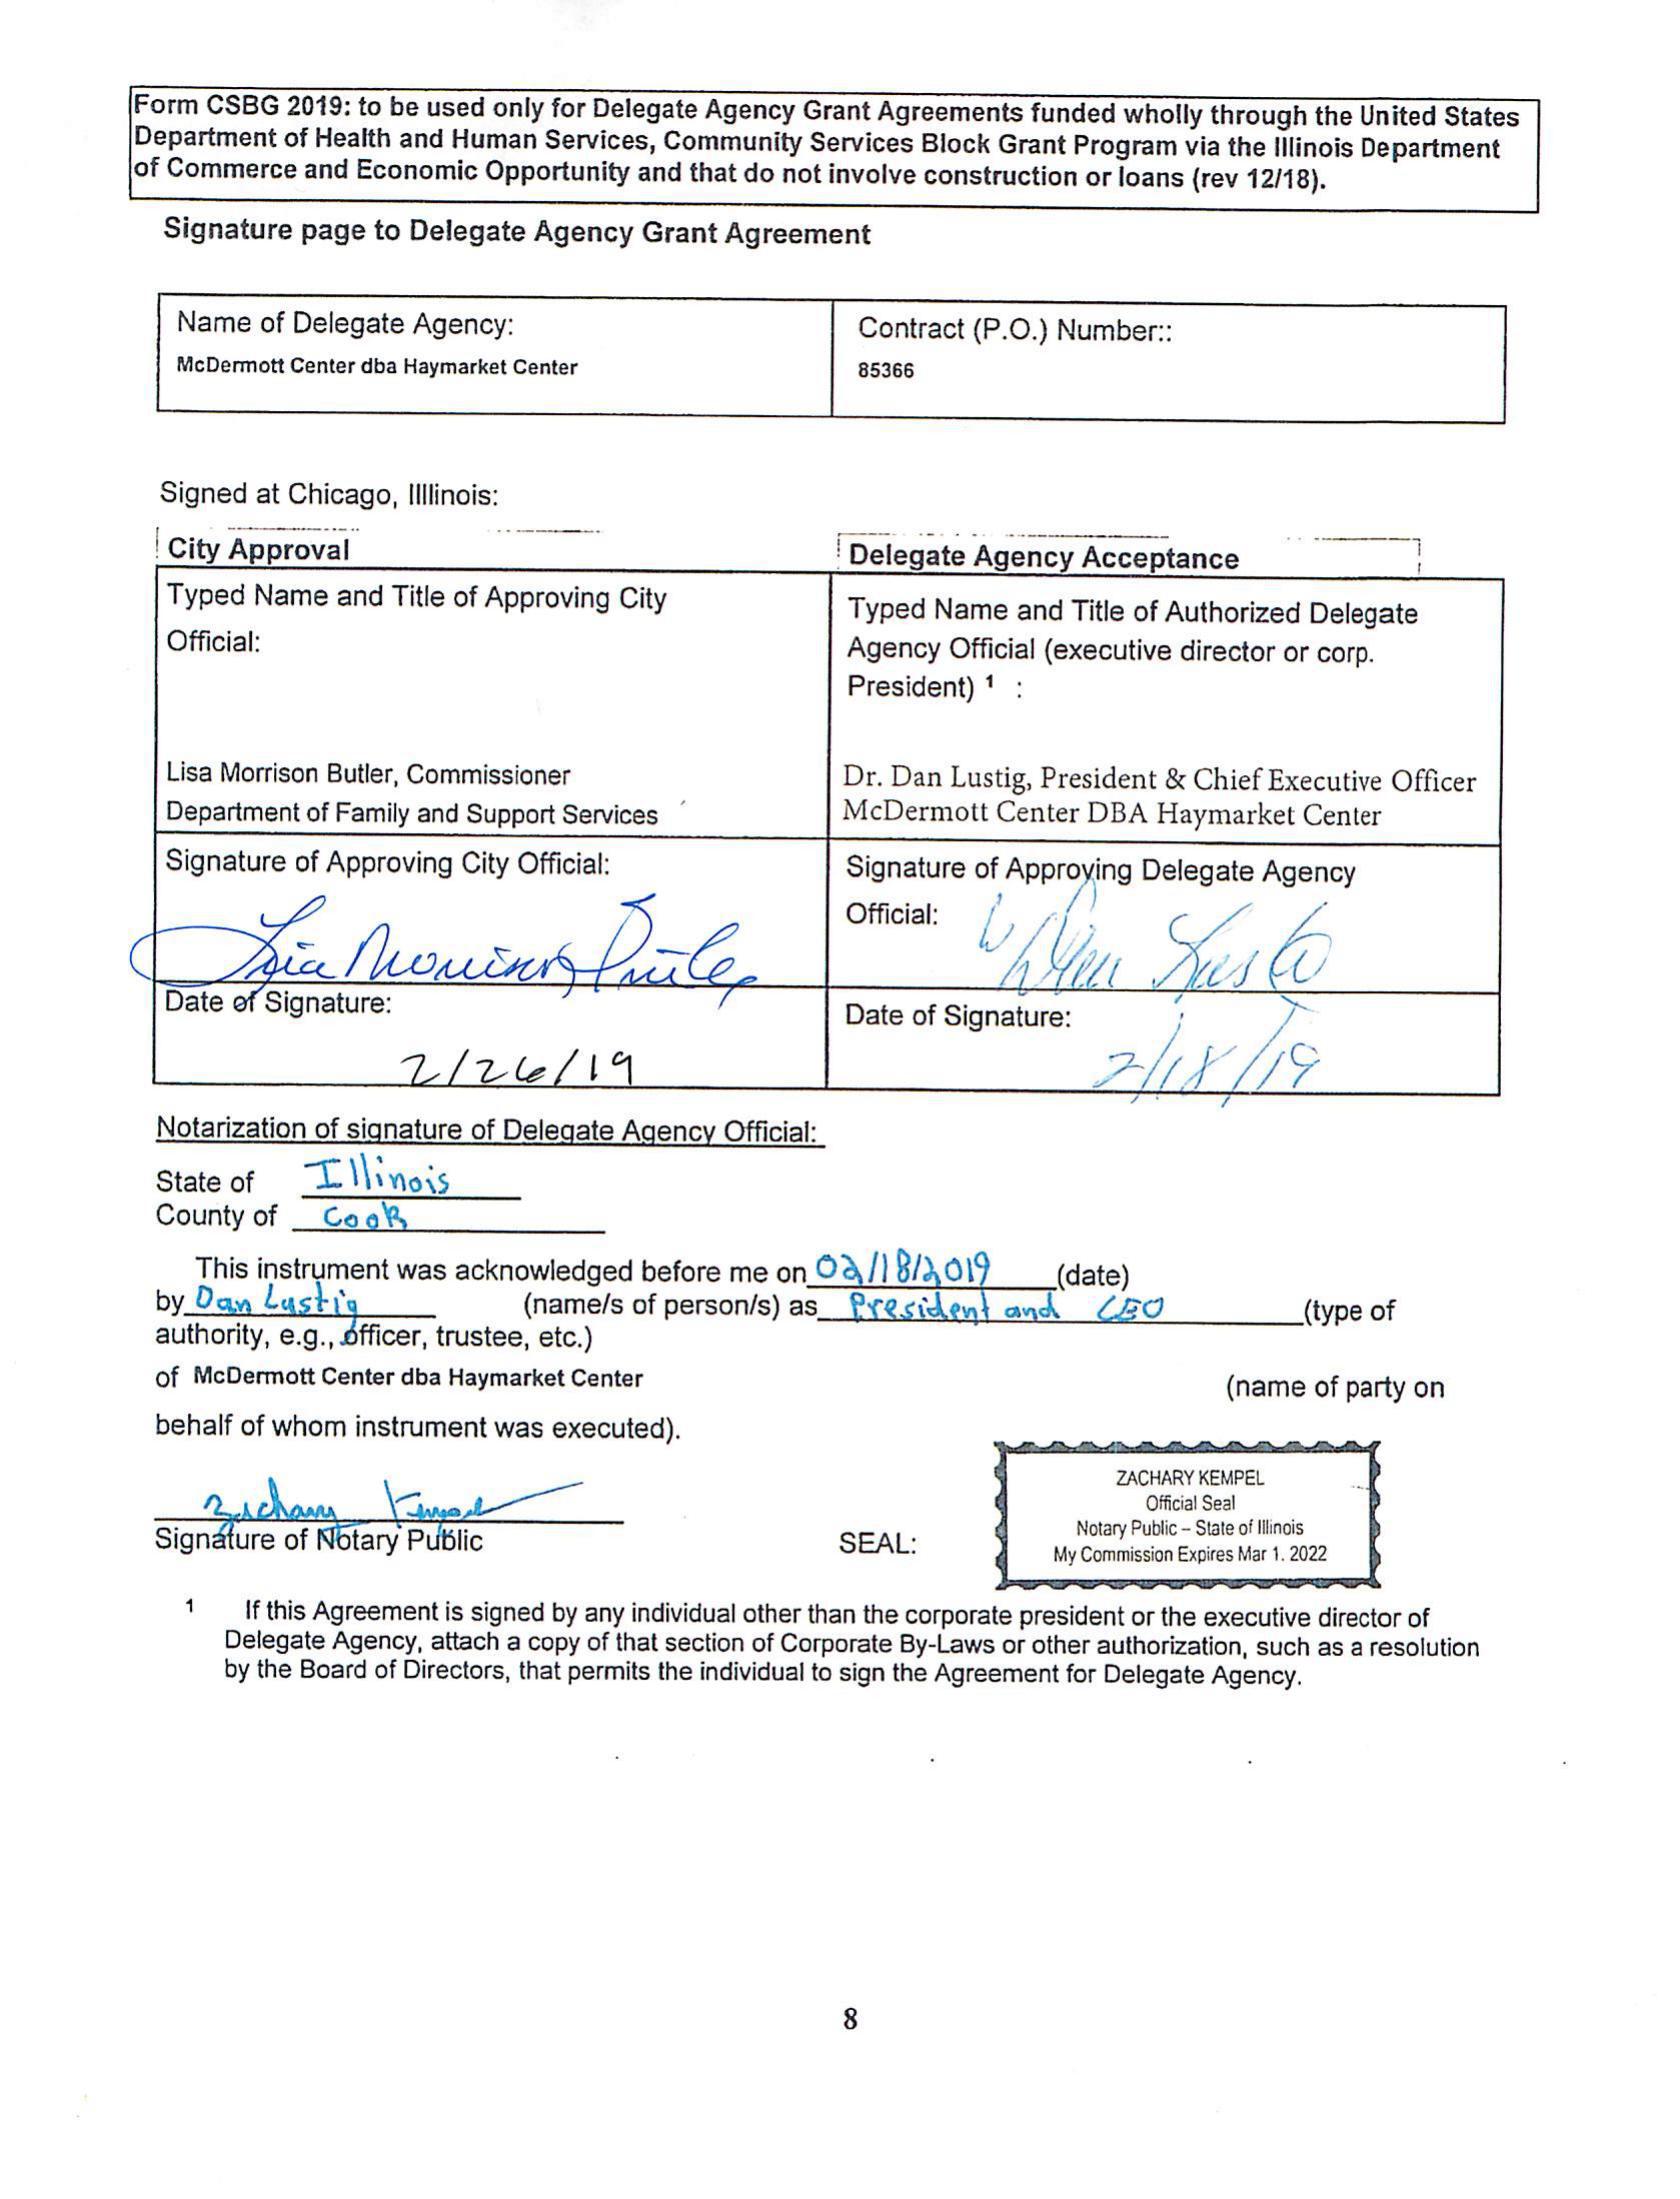 Form CSBG 2019: to be used only for Delegate Agency Grant Agreements funded wholly through the United States
Department of Health and Human Services, Community Services Block Grant Program via the Illinois Department
of Commerce and Economic Opportunity and that do not involve construction or loans (rev 12/18).
Signature page to Delegate Agency Grant Agreement
Name of Delegate Agency:
McDermott Center dba Haymarket Center
Contract (P.O.) Number::
85366
Signed at Chicago, Illlinois:
City Approval
Typed Name and Title of Approving City
Official:
Lisa Morrison Butler, Commissioner
Department of Family and Support Services
Delegate Agency Acceptance
Typed Name and Title of Authorized Delegate
Agency Official (executive director or corp.
President) 1 :
Dr. Dan Lustig, President & Chief Executive Officer
McDermott Center DBA Haymarket Center
Signature of Approving City Official:
Lisa Morrison Butler
Signature of Approving Delegate Agency
Official:
Date of Signature:
2/26/19
Date of Signature:
2/18/19
Notarization of signature of Delegate Agency Official:
State of Illinois
County of Cook
This instrument was acknowledged before me on 02/18/2019 (date)
by Dan Lustig (name/s of person/s) as President and CEO (type of
authority, e.g., officer, trustee, etc.)
of McDermott Center dba Haymarket Center (name of party on
behalf of whom instrument was executed).
Zachary Kempel
Signature of Notary Public
SEAL:
ZACHARY KEMPEL
Official Seal
Notary Public – State of Illinois
My Commission Expires Mar 1. 2022
1 If this Agreement is signed by any individual other than the corporate president or the executive director of
Delegate Agency, attach a copy of that section of Corporate By-Laws or other authorization, such as a resolution
by the Board of Directors, that permits the individual to sign the Agreement for Delegate Agency.
8